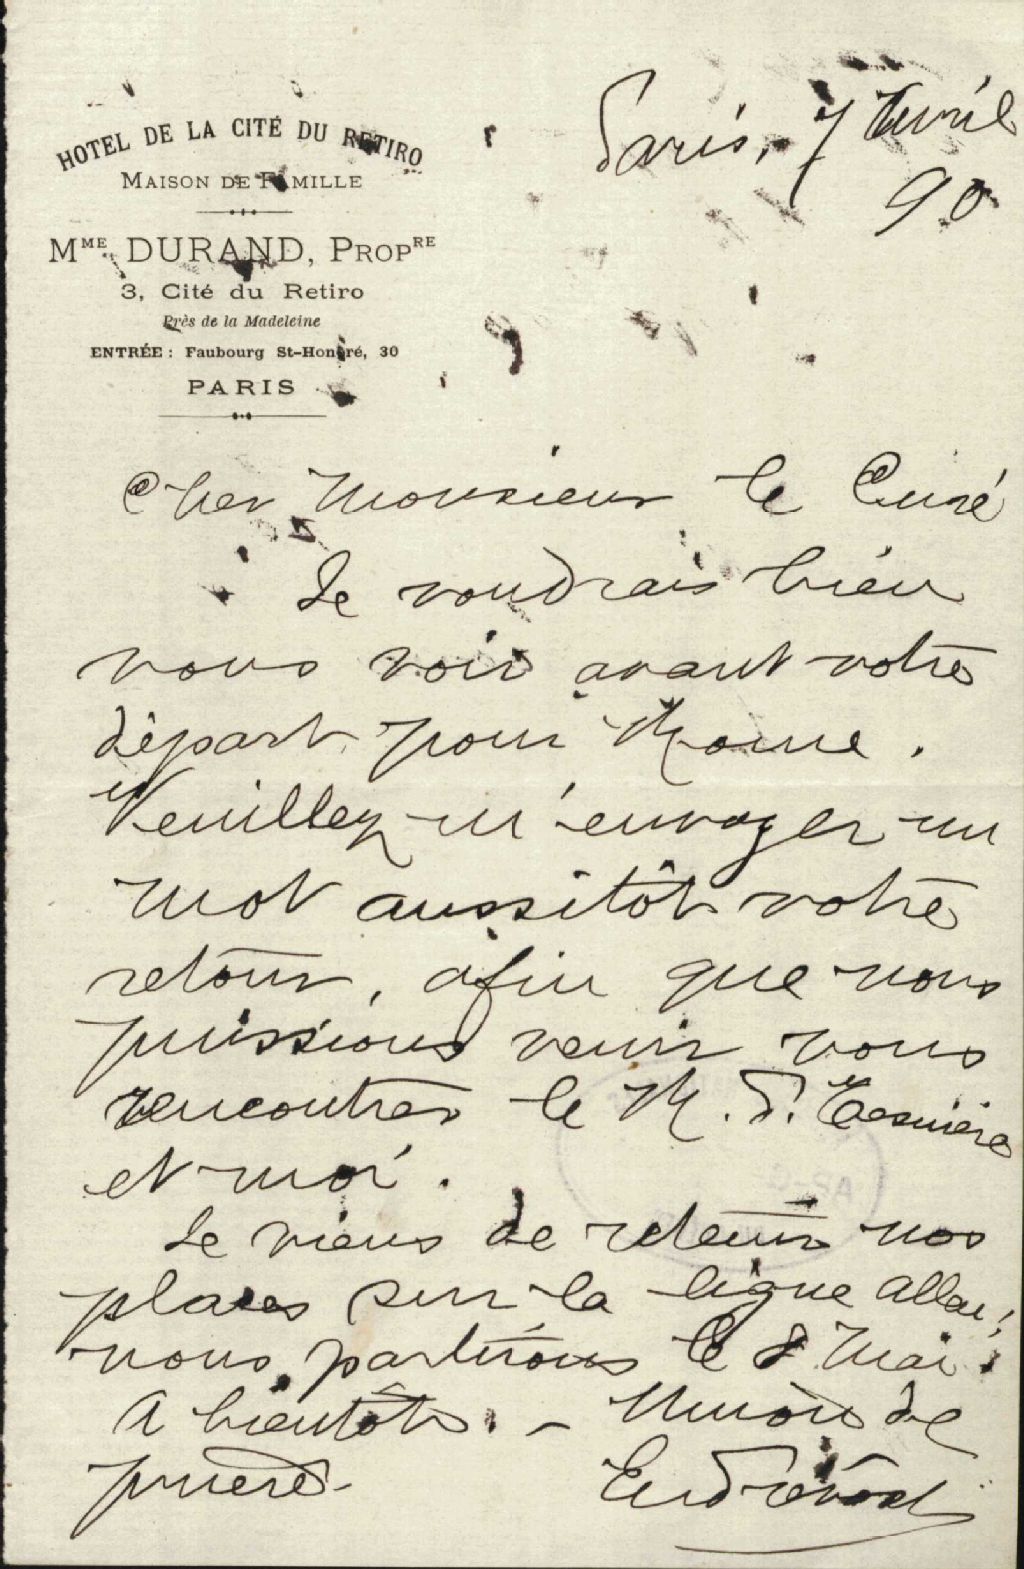 HOTEL DE LA CITÉ DU RETIRO
MAISON DE FAMILLE
MME DURAND, PROPRE
3, Cité du Retiro
Près de la Madeleine
ENTRÉE : Faubourg St-Honoré, 30
PARIS
Paris, 7 Avril
90
Cher Monsieur le Curé
Je voudrais bien
vous voir avant votre
départ pour Rome.
Veuillez m'envoyer un
mot aussitôt votre
retour, afin que nous
puissions venir vous
rencontrer le R. P. Tesnière
et moi.
Je viens de retenir nos
places sur la ligne Allan;
nous partirons le 8 Mai.
A bientôt. – Union de
prière -